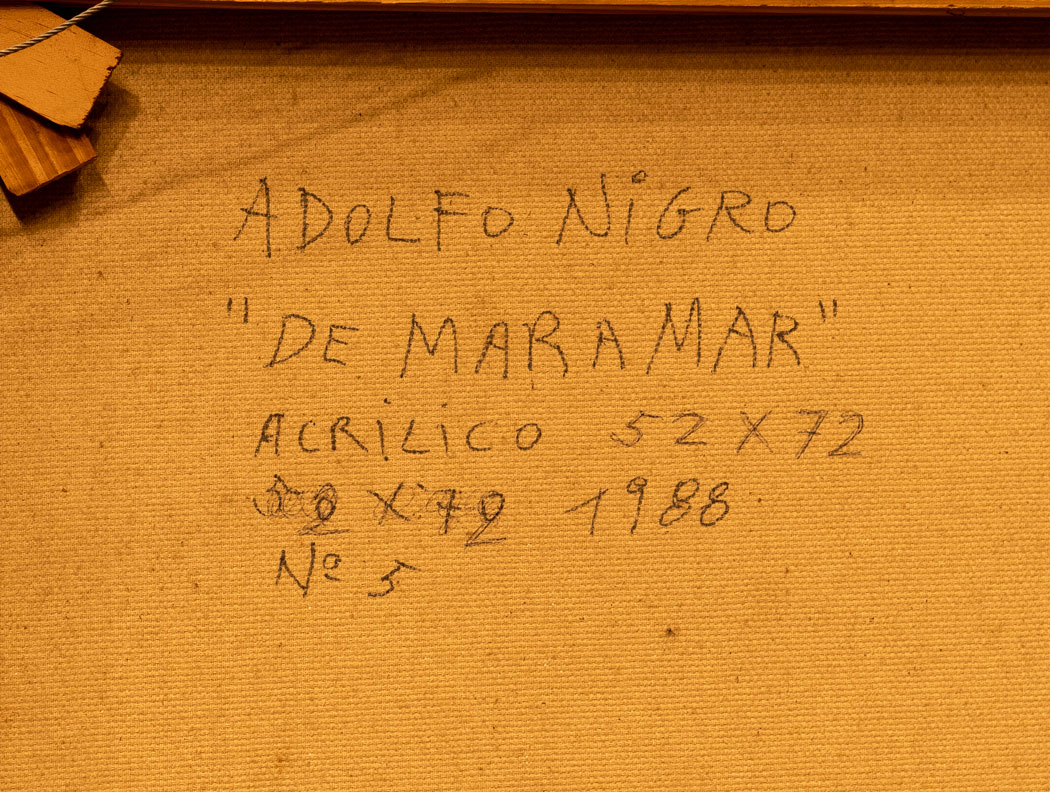 ADOLFO NiGRO
"DE MAR A MAR"
ACRiLiCO 52 X 72
X 1988
Nº 5